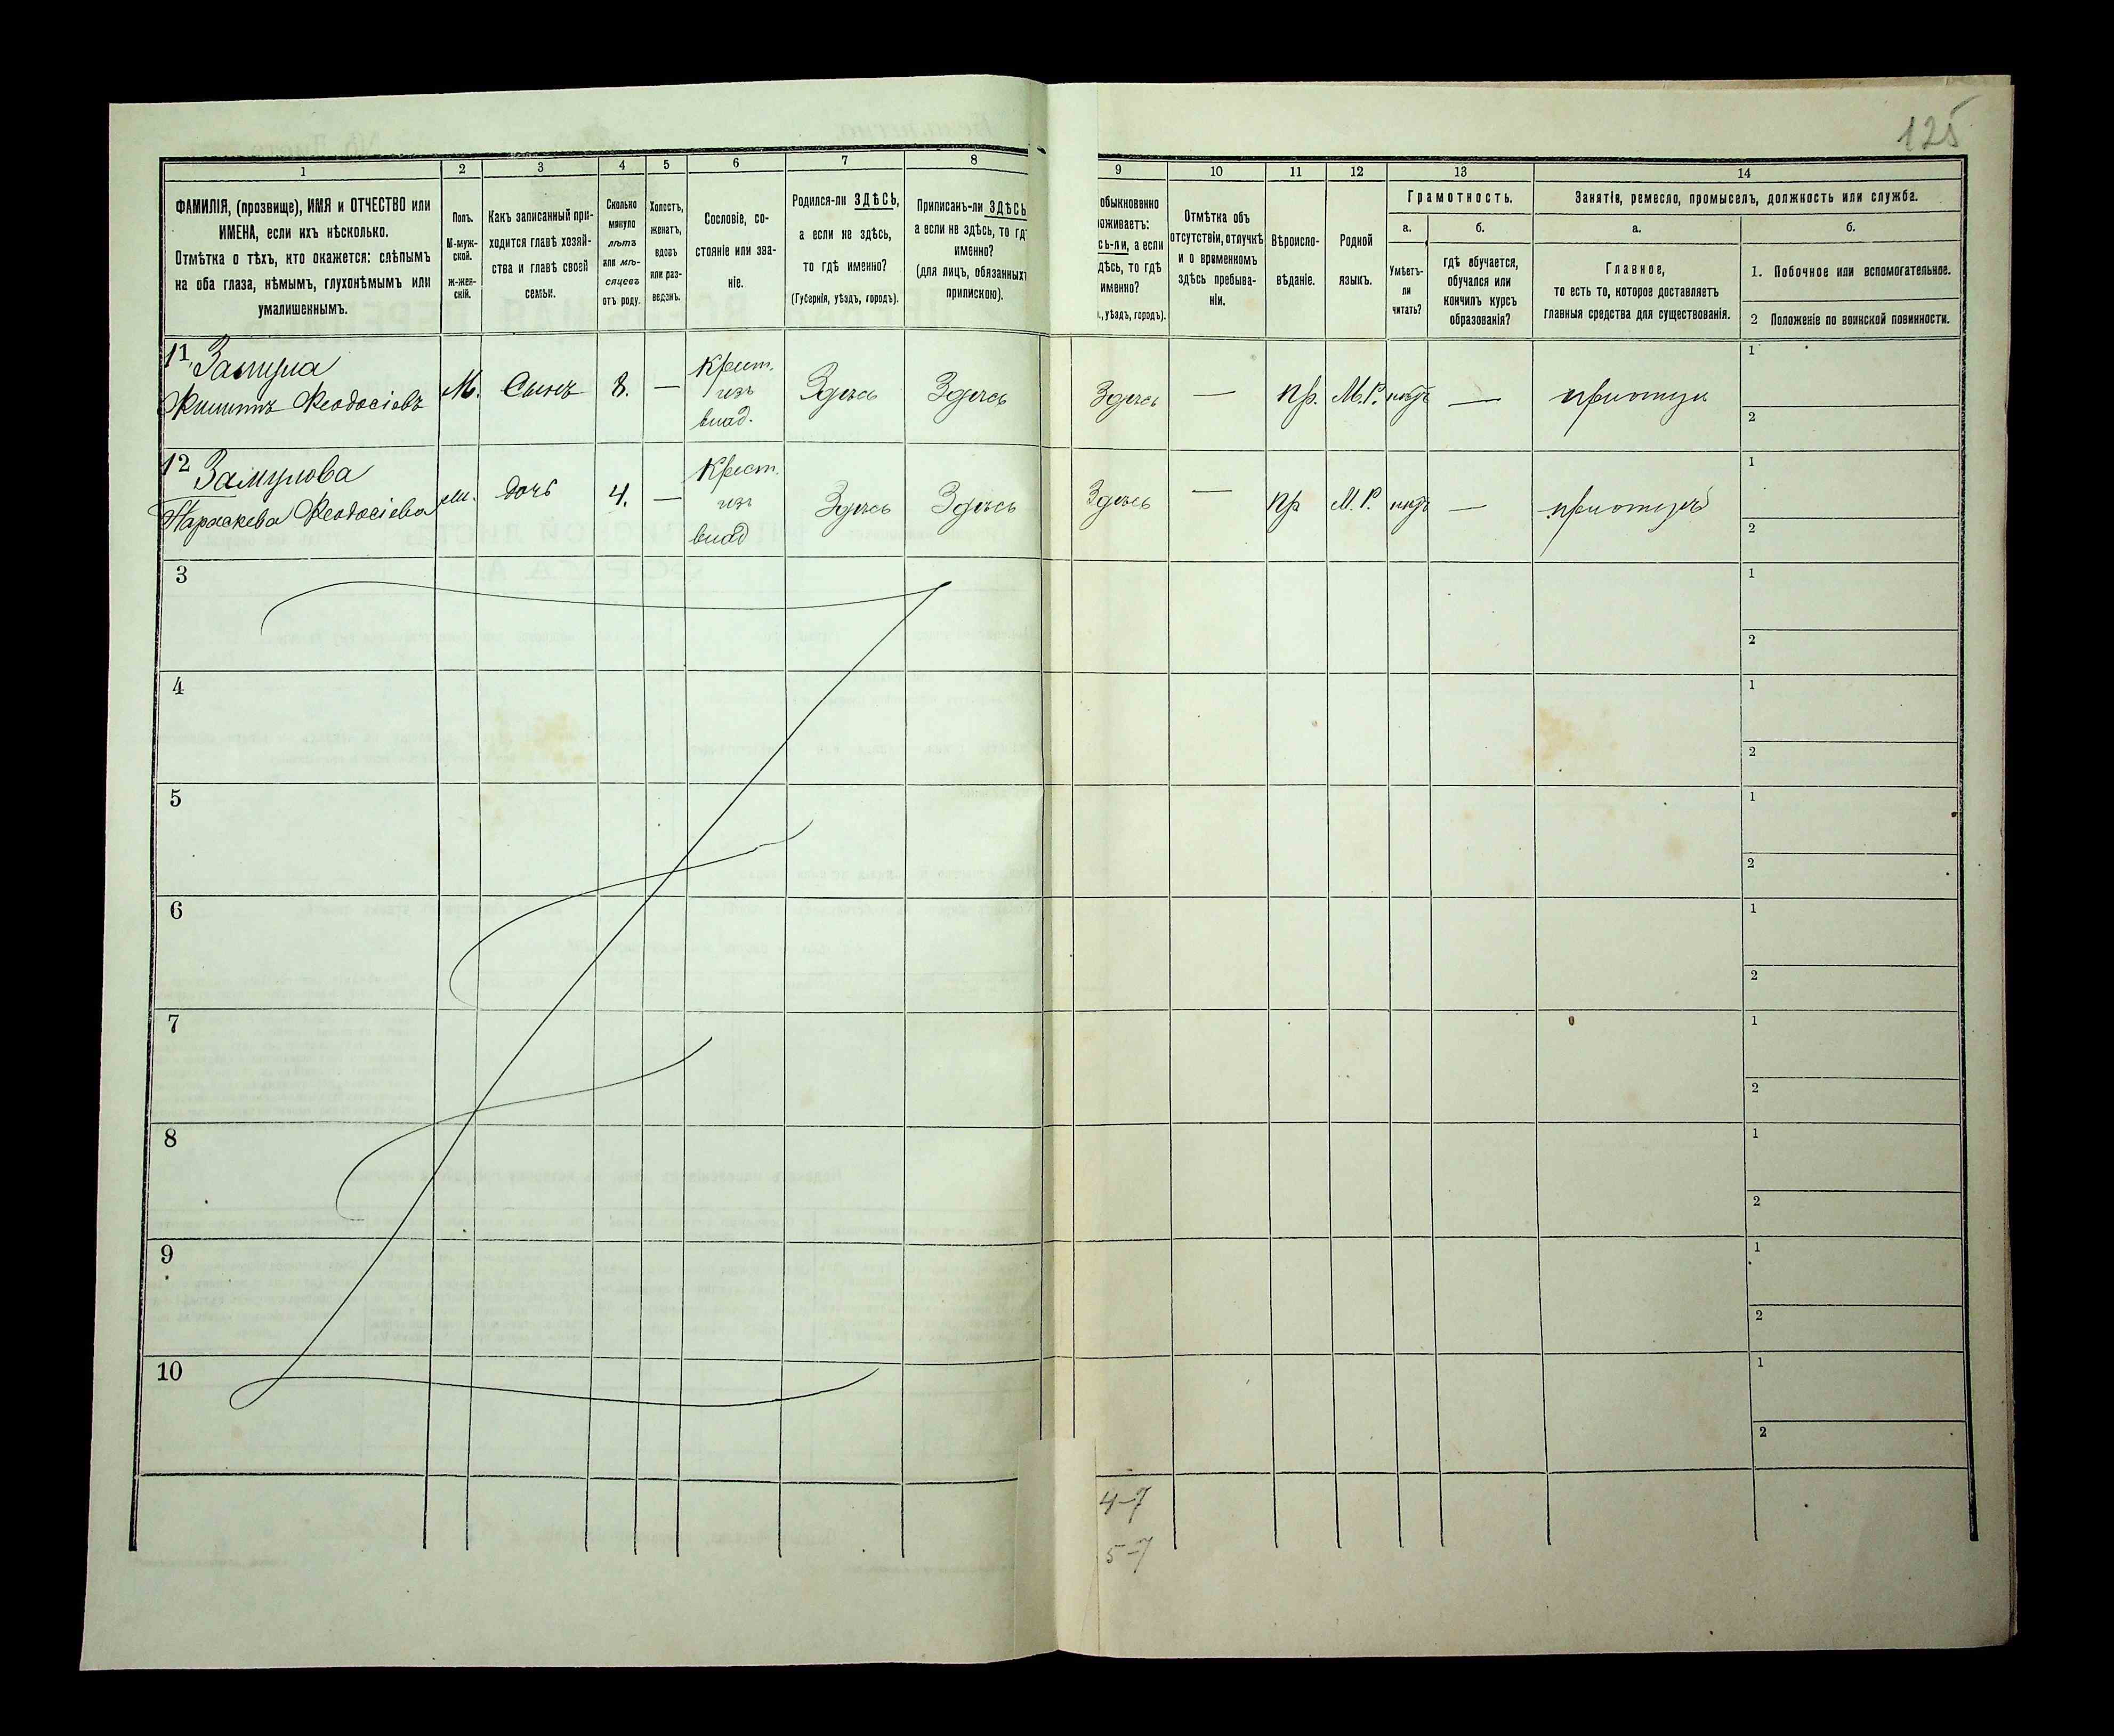 125
1
2
3
4
5
6
7
8
9
10
11
12
13
14
ФАМИЛІЯ, (прозвище), ИМЯ и ОТЧЕСТВО или
ИМЕНА, если ихъ нѣсколько.
Отмѣтка о тѣхъ, кто окажется: слѣпымъ
на оба глаза, нѣмымъ, глухонѣмымъ или
умалишеннымъ.
Полъ.
М-муж-
ской.
ж-жен-
скій.
Какъ записанный при-
ходится главѣ хозяй-
ства и главѣ своей
семьи.
Сколько
минуло
лѣтъ
или мѣ-
сяцевъ
отъ роду.
Холостъ,
женатъ,
вдовъ
или раз-
веденъ.
Сословіе, со-
стояніе или зва-
ніе.
Родился-ли ЗДѢСЬ,
а если не здѣсь,
то гдѣ именно?
(Губернія, уѣздъ, городъ).
Приписанъ-ли ЗДѢСЬ
а если не здѣсь, то гд
именно?
(для лицъ, обязанныхъ
припискою).
обыкновенно
оживаетъ:
сь-ли, а если
дѣсь, то гдѣ
именно?
., уѣздъ, городъ).
Отмѣтка объ
отсутствіи, отлучкѣ
и о временномъ
здѣсь пребыва-
ніи.
Вѣроиспо-
вѣданіе.
Родной
языкъ.
Грамотность.
а.
б.
Умѣетъ-
ли
читать?
гдѣ обучается,
обучался или
кончилъ курсъ
образованія?
Занятіе, ремесло, промыселъ, должность или служба.
а.
б.
Главное,
то есть то, которое доставляетъ
главныя средства для существованія.
1. Побочное или вспомогательное.
2 Положеніе по воинской повинности.
11. Замула
Филиппъ Феодосіевъ
М.
Сынъ
8.
—
Крест.
изъ
влад.
Здѣсь
Здѣсь
Здѣсь
—
пр.
М.Р.
нѣтъ
—
при отцѣ
1
2
12 Замулова
Параскева Феодосіева
ж.
дочь
4.
—
Крест.
изъ
влад
Здѣсь
Здѣсь
Здѣсь
—
пр
М.Р.
нѣтъ
—
при отцѣ
1
2
3
1
2
4
1
2
5
1
2
6
1
2
7
1
2
8
1
2
9
1
2
10
1
2
4-7
5-7